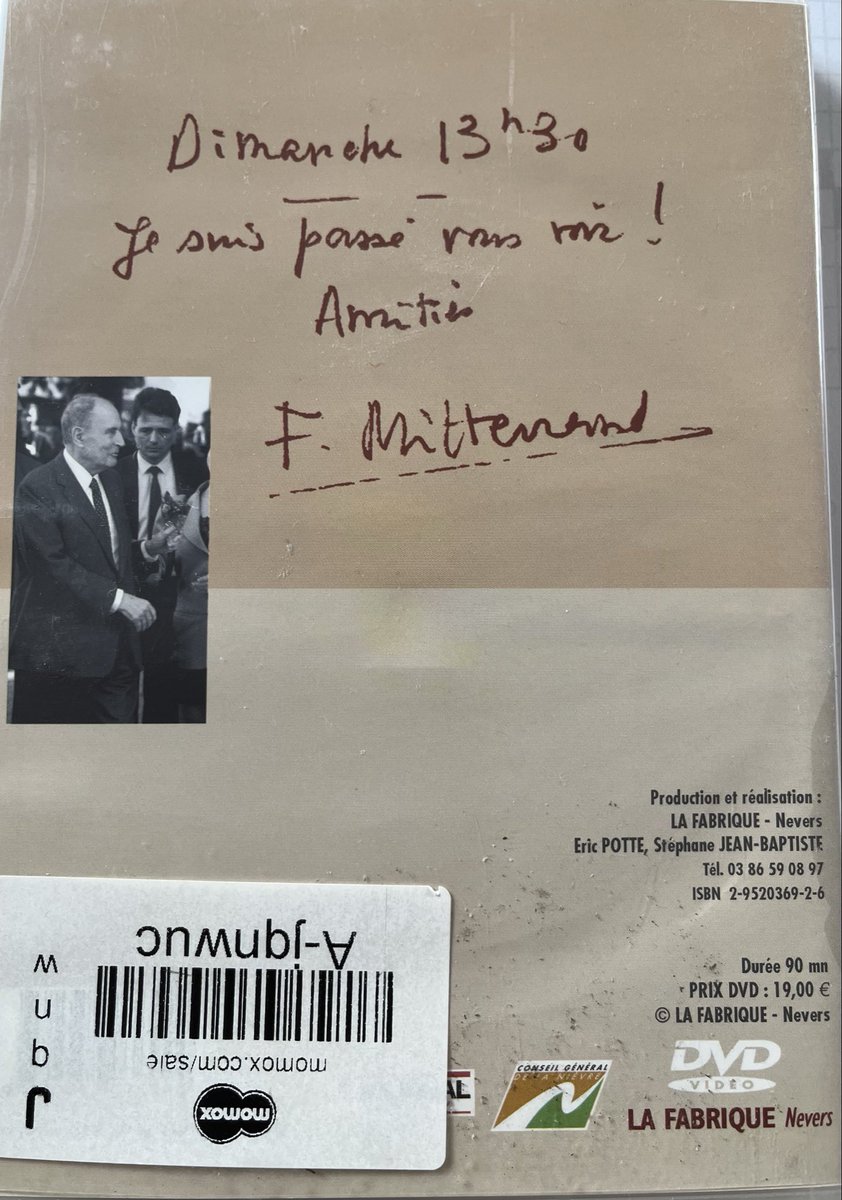 Dimanche 13h30
Je suis passé vous voir !
Amitiés
F. Mitterrand
Production et réalisation :
LA FABRIQUE - Nevers
Eric POTTE, Stéphane JEAN-BAPTISTE
Tél. 03 86 59 08 97
ISBN 2-9520369-2-6
Durée 90 mn
PRIX DVD : 19,00 €
© LA FABRIQUE - Nevers
DVD
VIDEO
CONSEIL GÉNÉRAL
DE LA NIÈVRE
AL
LA FABRIQUE Nevers
momox
momox.com/sale
A-jqnwuc
J q n w